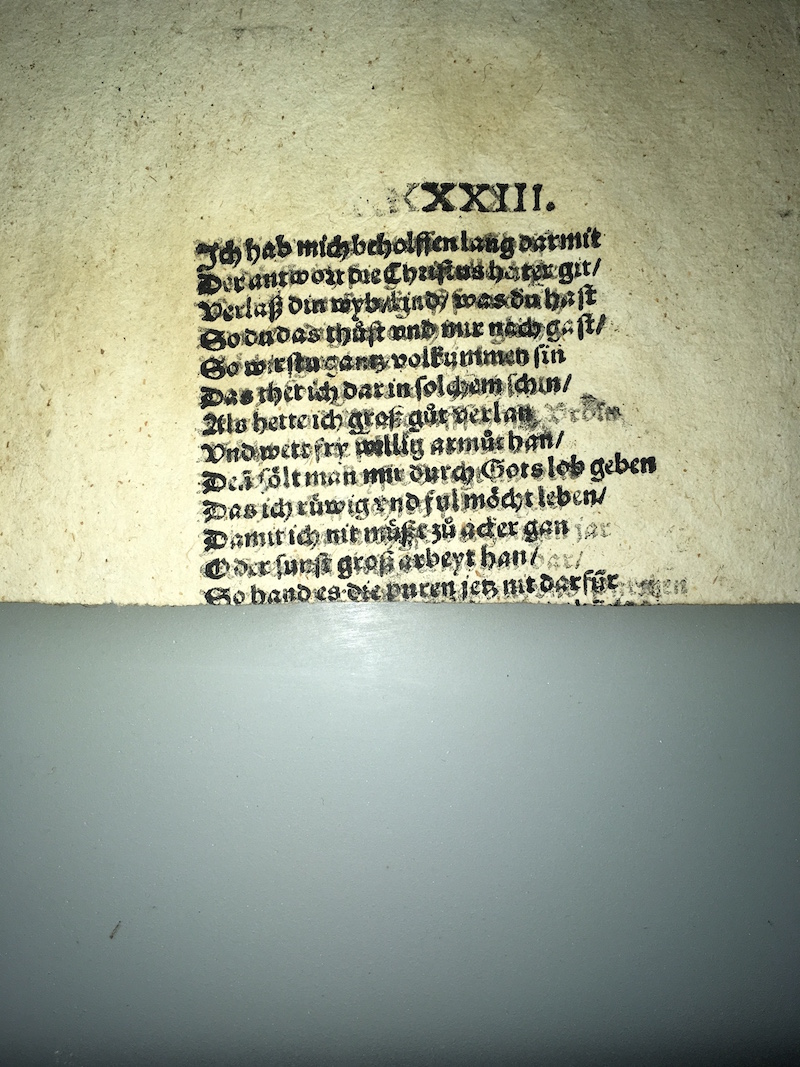 XXXIII.
Ich hab mich beholffen lang darmit
Der antwort die Christus hater git/
Verlaß din wyb/kind/ was du hast
So du das thůst vnd mir nach gast/
So wirstu gantz volkummen sin
Das thet ich dar in solchem schin/
Als hette ich groß gůt verlan
Vnd wett fry willig armůt han/
Deñ sölt man mir durch Gots lob geben
Das ich rüwig vnd ful möcht leben/
Damit ich nit můßt zů acker gan
Oder sunst groß arbeyt han/
So hand es die puren jetz nit darfür